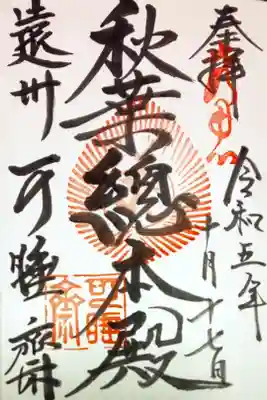 奉拝
令和五年
十月十七日
秋葉總本殿
遠州 可睡斎